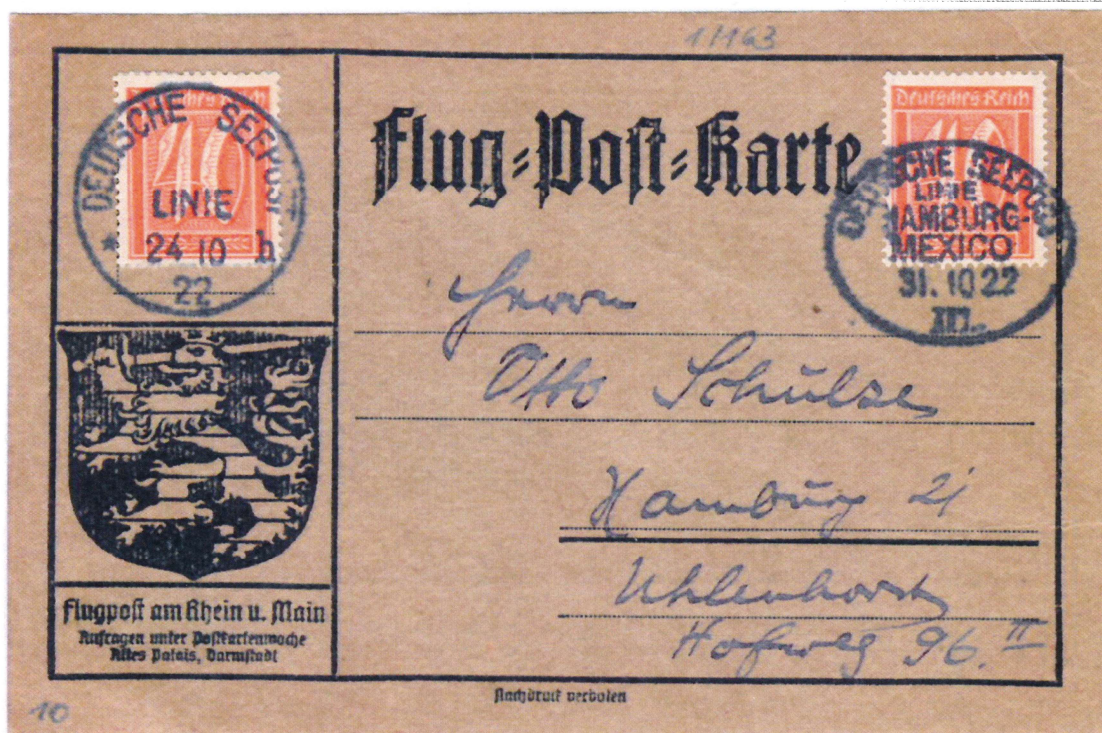 1/163
Deutsches Reich
40
DEUTSCHE SEEPOST
LINIE
24 10 h
22
Flug-Post-Karte
Deutsches Reich
40
DEUTSCHE SEEPOST
LINIE
HAMBURG-
MEXICO
31.10 22
III.
Herrn
Otto Schulse
Hamburg 21
Uhlenhorst
Hofweg 96. II
Flugpost am Rhein u. Main
Anfragen unter Postkartenwoche
Altes Palais, Darmstadt
Nachdruck verboten
10